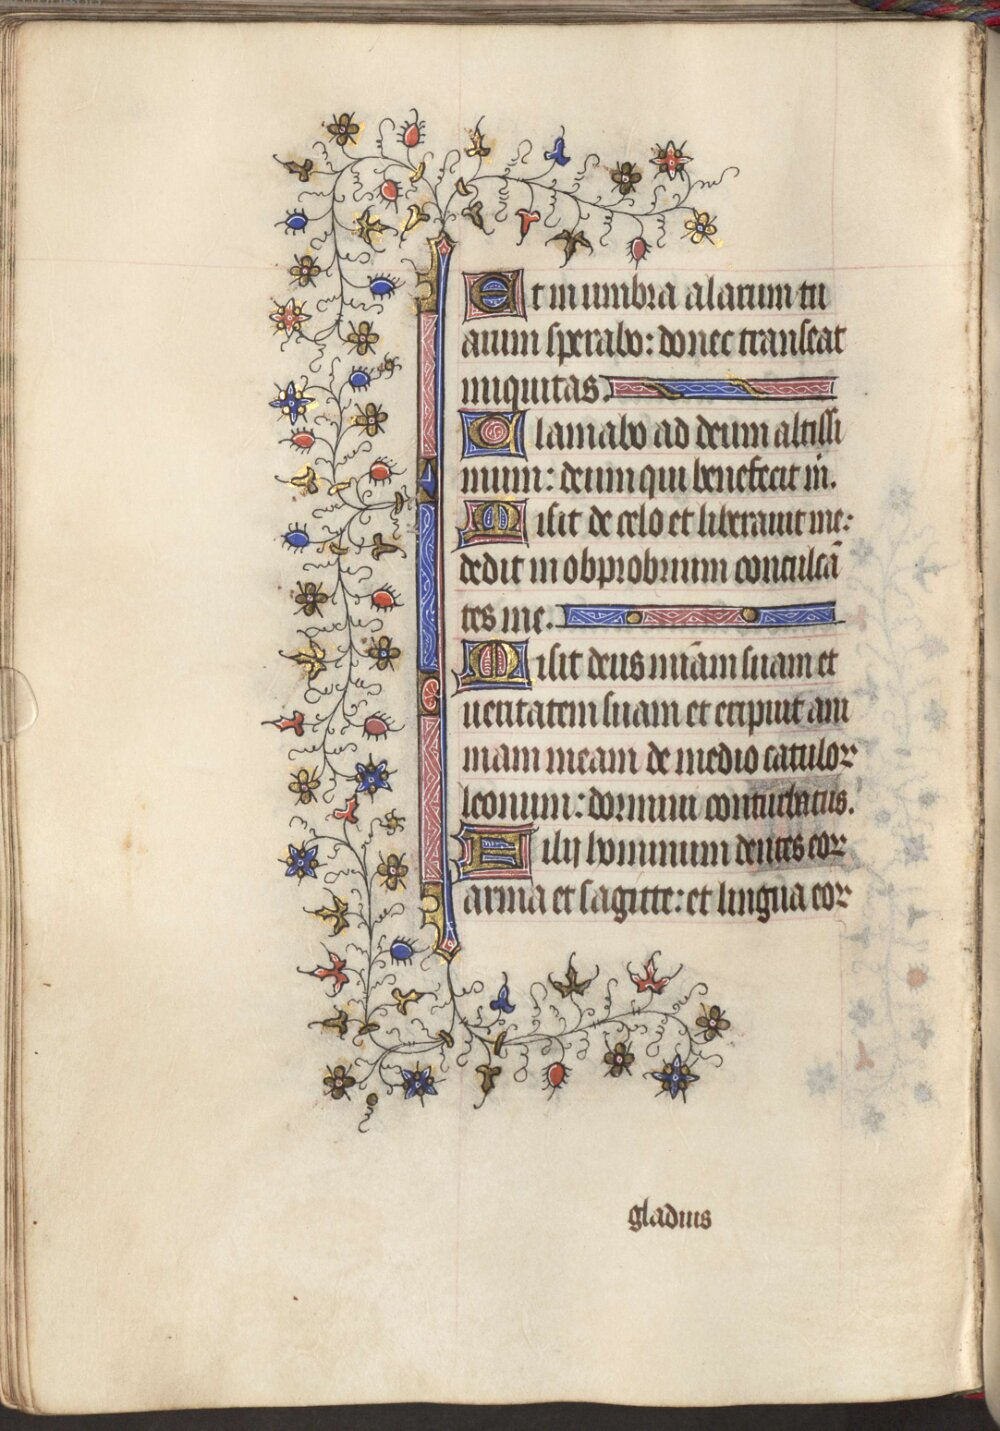 Et in umbra alarum tu
arum sperabo: donec transeat
iniquitas.
Clamabo ad deum altissi
mum: deum qui benefecit m̄.
Misit de celo et liberauit me:
dedit in obprobrium conculcā
tes me.
Misit deus miām suam et
ueritatem suam et eripuit ani
mam meam de medio catuloꝝ
leonum: dormiui conturbatus.
Filij hominum dentes eoꝝ
arma et sagitte: et lingua eoꝝ
gladius